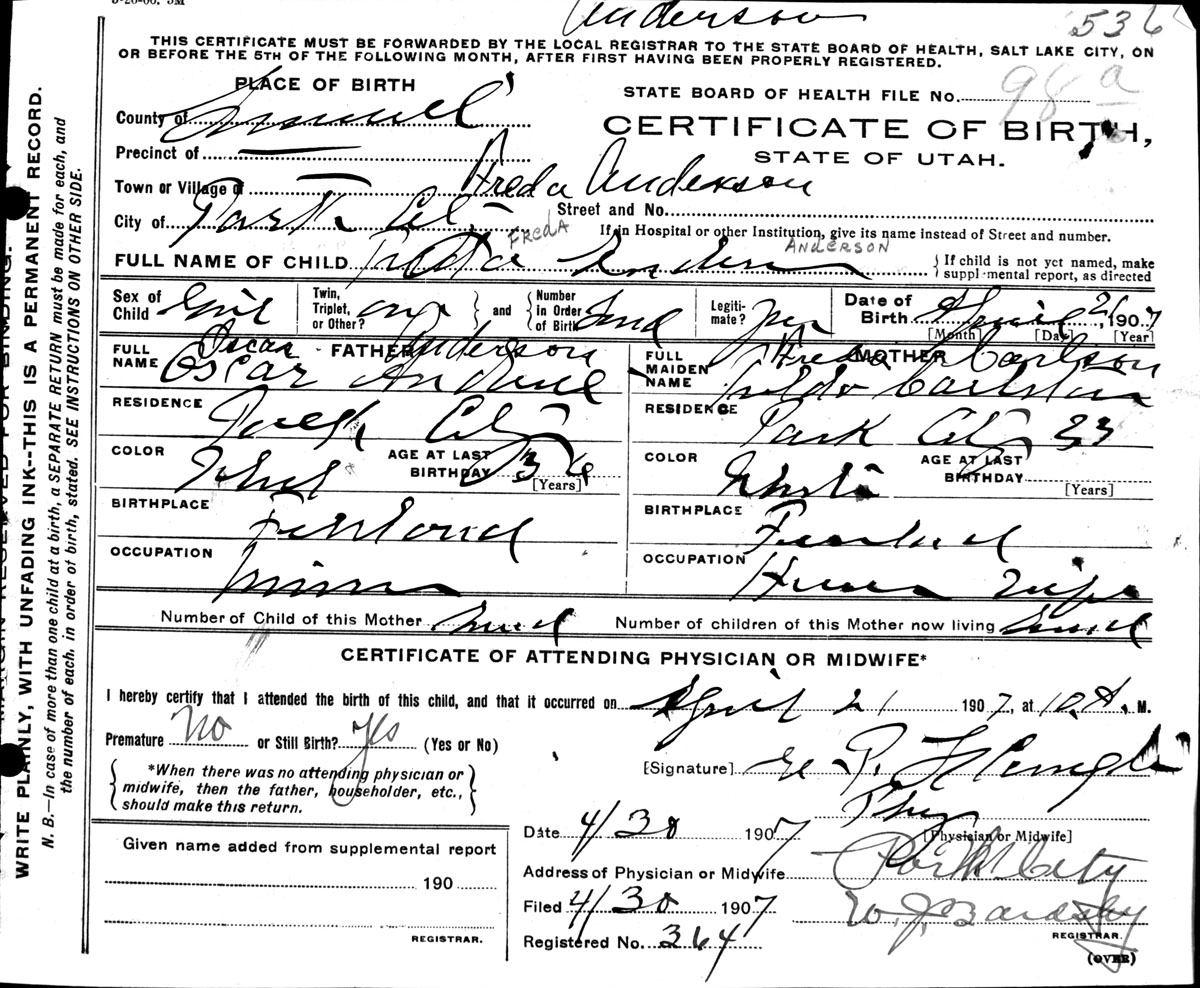 Anderson
536
THIS CERTIFICATE MUST BE FORWARDED BY THE LOCAL REGISTRAR TO THE STATE BOARD OF HEALTH, SALT LAKE CITY, ON
OR BEFORE THE 5TH OF THE FOLLOWING MONTH, AFTER FIRST HAVING BEEN PROPERLY REGISTERED.
PLACE OF BIRTH
STATE BOARD OF HEALTH FILE No. 98 a
County of Summit
CERTIFICATE OF BIRTH,
STATE OF UTAH.
Precinct of
Town or Village of
Freda Anderson
City of Park City
Street and No.
If in Hospital or other Institution, give its name instead of Street and number.
FREDA ANDERSON
FULL NAME OF CHILD Anderson
If child is not yet named, make
supplemental report, as directed
Sex of Child Girl
Twin, Triplet, or Other?
and
Number in Order of Birth 2nd
Legitimate? yes
Date of Birth April 21, 1907
[Month] [Day] [Year]
FATHER
Oscar Anderson
FULL NAME Oscar
RESIDENCE Park City
COLOR White
AGE AT LAST BIRTHDAY 36
[Years]
BIRTHPLACE Finland
OCCUPATION Miner
MOTHER
Freda Carlson
FULL MAIDEN NAME
RESIDENCE Park City
COLOR White
AGE AT LAST BIRTHDAY 23
[Years]
BIRTHPLACE Finland
OCCUPATION House Wife
Number of Child of this Mother
Number of children of this Mother now living
CERTIFICATE OF ATTENDING PHYSICIAN OR MIDWIFE*
I hereby certify that I attended the birth of this child, and that it occurred on April 21 1907, at 10 A. M.
Premature No or Still Birth? Yes (Yes or No)
*When there was no attending physician or
midwife, then the father, householder, etc.,
should make this return.
[Signature] E. P.
Phys
[Physician or Midwife]
Date 4/30 1907
Address of Physician or Midwife Park City
Filed 4/30 1907
W. J. Bardsley
REGISTRAR.
Registered No. 364
(OVER)
Given name added from supplemental report
190
REGISTRAR.
MARGIN RESERVED FOR BINDING.
WRITE PLAINLY, WITH UNFADING INK--THIS IS A PERMANENT RECORD.
N. B.—In case of more than one child at a birth, a SEPARATE RETURN must be made for each, and
the number of each, in order of birth, stated. SEE INSTRUCTIONS ON OTHER SIDE.